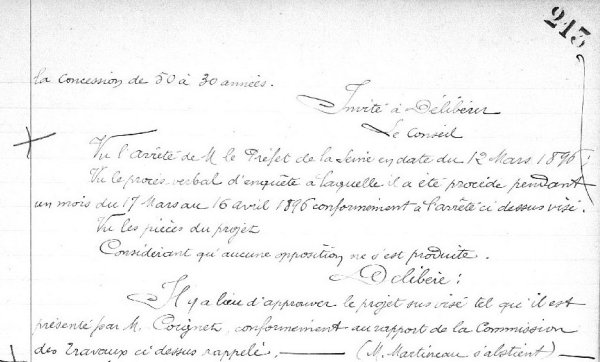 213
la concession de 50 à 30 années.
Invité à Délibérer
Le Conseil
Vu l'arrêté de M le Préfet de la Seine en date du 12 Mars 1896;
Vu le procès verbal d'enquête à laquelle il a été procédé pendant
un mois du 17 Mars au 16 avril 1896 conformément à l'arrêté ci dessus visé.
Vu les pièces du projet
Considérant qu'aucune opposition ne s'est produite.
Délibère:
Il y a lieu d'approuver le projet sus visé tel qu'il est
présenté par M. Coignet, conformément au rapport de la Commission
des Travaux ci dessus rappelé, — (M. Martineau s'abstient)